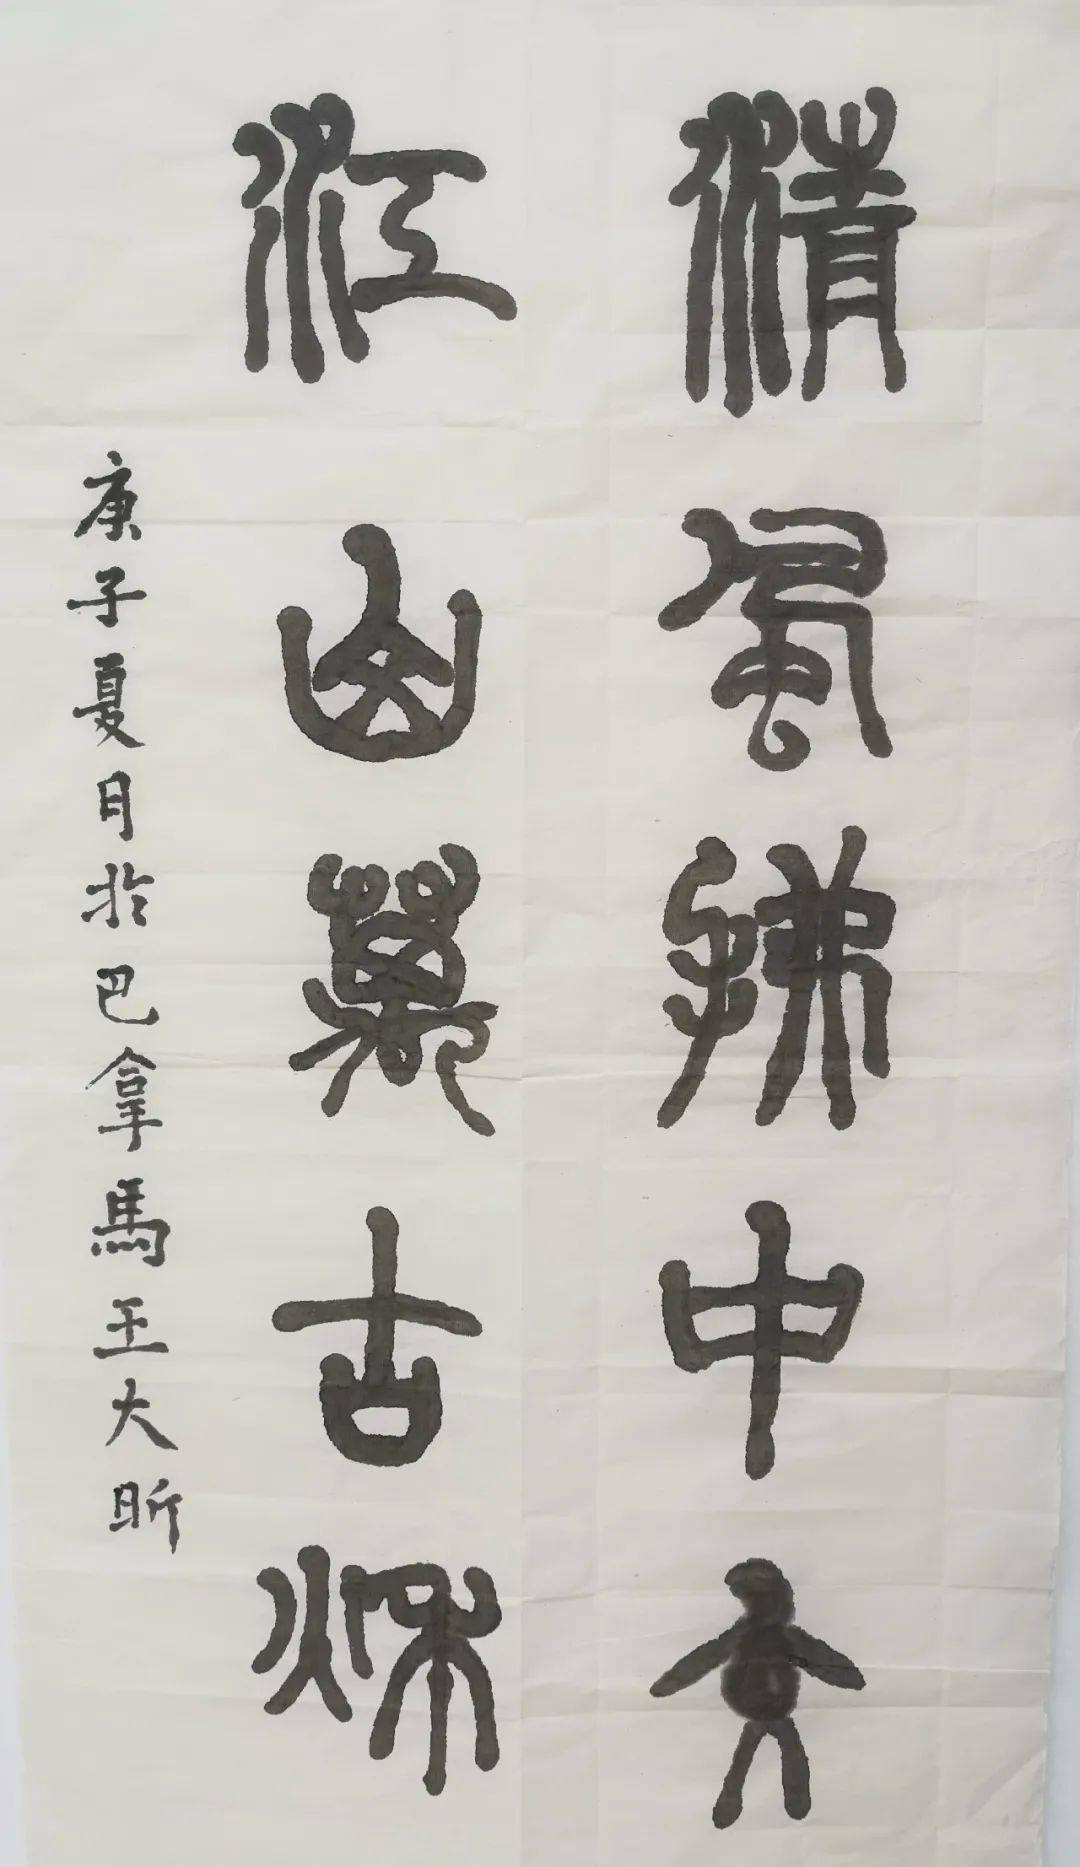 清風拂中天
江山萬古秋
庚子夏月於巴拿馬王大昕